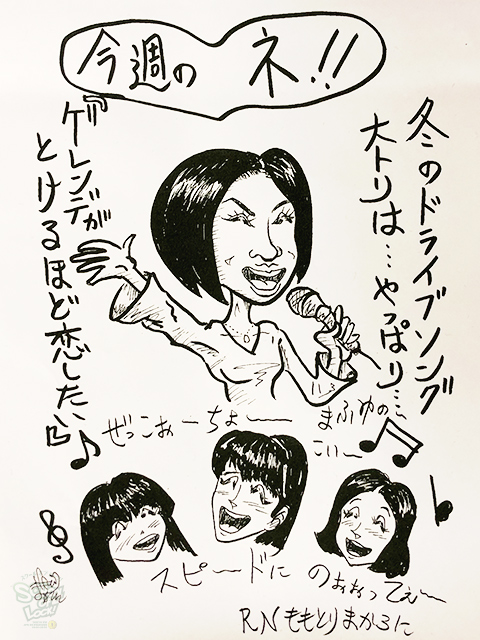 今週の ネ!!
冬のドライブソング
大トリは…やっぱり…
ゲレンデが
とけるほど恋したい
ぜっこぉーちょー まふゆの
こいー
スピードに のぉぉってぇー
RN ももとりまかろに